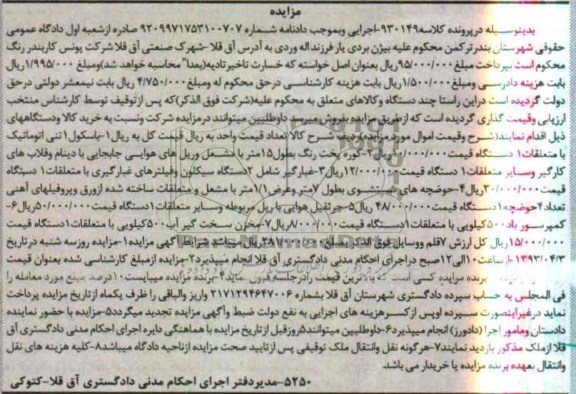 مزایده
بدینوسیله در پرونده کلاسه ۹۳۰۱۴۹-اجرایی وبموجب دادنامه شماره ۹۲۰۹۹۷۱۷۵۳۱۰۰۷۰۷ صادره ازشعبه اول دادگاه عمومی
حقوقی شهرستان بندرترکمن محکوم علیه بیژن بردی یار فرزند اله وردی به آدرس آق قلا -شهرک صنعتی آق قلا شرکت پونس کاربندر رنگ
محکوم است بپرداخت مبلغ ۹۵/۰۰۰/۰۰۰ریال بعنوان اصل خواسته که خسارت تاخیرتادیه(بعدا" محاسبه خواهد شد)ومبلغ ۱/۹۹۵/۰۰۰ریال
بابت هزینه دادرسی ومبلغ ۱/۵۰۰/۰۰۰ریال بابت هزینه کارشناسی درحق محکوم له ومبلغ ۴/۷۵۰/۰۰۰ ریال بابت نیمعشر دولتی درحق
دولت گردیده است دراین راستا چند دستگاه وکالاهای متعلق به محکوم علیه(شرکت فوق الذکر)که پس ازتوقیف توسط کارشناس منتخب
ارزیابی وقیمت گذاری گردیده است که ازطریق مزایده بفروش میرسد داوطلبین میتوانند درمزایده شرکت ونسبت به خرید کالا ودستگاههای
ذیل اقدام نمایند(شرح وقیمت اموال مورد مزایده) ردیف شرح کالا تعداد قیمت واحد به ریال قیمت کل به ریال ۱-باسکول ۱تنی اتوماتیک
با متعلقات ۱ دستگاه قیمت ریال ۲-کوره پخت رنگ بطول ۱۵متر با مشعل وریل های هوایی جابجایی با دینام وقلاب های
کارگیر وسایر متعلقات ۱ دستگاه قیمت ریال ۳-غبارگیر شامل ۲دستگاه سیکلون وفیلترهای غبارگیری با متعلقات ۱ دستگاه
قیمت ۳۰/۰۰۰/۰۰۰ریال ۴-حوضچه های شستشوی بطول ۷متر وعرض ۱/۱متر با مشعل و متعلقات ساخته شده ازورق وپروفیلهای آهنی
تعداد ۴حوضچه ۱ دستگاه قیمت ۴۸/۰۰۰/۰۰۰ ریال ۵-جرثقیل هوایی با ریل مربوطه وسایر متعلقات ۱دستگاه قیمت ۵۰/۰۰۰/۰۰۰ریال ۶-
کمپرسور باد ۵۰۰کیلویی با متعلقات ۱دستگاه قیمت ۸/۰۰۰/۰۰۰ریال ۷-مخزن سخت گیر آب ۵۰۰کیلویی با متعلقات ۱ دستگاه قیمت
۱۵/۰۰۰/۰۰۰ ریال کل ارزش ۷قلم ووسایل فوق الذکر مبلغ ریال میباشد شرایط آگهی مزایده:۱-مزایده روزسه شنبه درتاریخ
۱۳۹۳/۰۴/۳ از ساعت ۱۰الی ۱۲صبح دراجرای احکام مدنی دادگستری آق قلا انجام میپذیرد ۲-مزایده ازمبلغ کارشناسی شده بعنوان قیمت
برنده مزایده کسی است که بالاترین قیمت رادرجلسه قبول نماید ۴-برنده مزایده میبایست ۱۰درصد مبلغ مورد معامله را
فی المجلس به حساب سپرده دادگستری شهرستان آق قلا بشماره ۲۱۷۱۲۹۴۶۴۷۰۰۶ واریز والباقی را ظرف یکماه ازتاریخ مزایده پرداخت
نماید درغیراینصورت سپرده اوپس ازکسرهزینه های اجرایی به نفع دولت ضبط وآگهی مزایده تجدید میگردد ۵-مزایده با حضور نماینده
دادستان ومامور اجرا (دادورز) انجام میپذیرد ۶-داوطلبین میتوانند ۵روزقبل ازتاریخ مزایده با هماهنگی دایره اجرای احکام مدنی دادگستری آق
قلا ازملک مذکور بازدید نمایند ۷-هرگونه نقل وانتقال ملک توقیفی پس ازتایید صحت مزایده ازناحیه دادگاه میباشد ۸-کلیه هزینه های نقل
وانتقال بعهده برنده مزایده یا خریدار می باشد.
۵۲۵۰-مدیر دفتر اجرای احکام مدنی دادگستری آق قلا-کتوکی